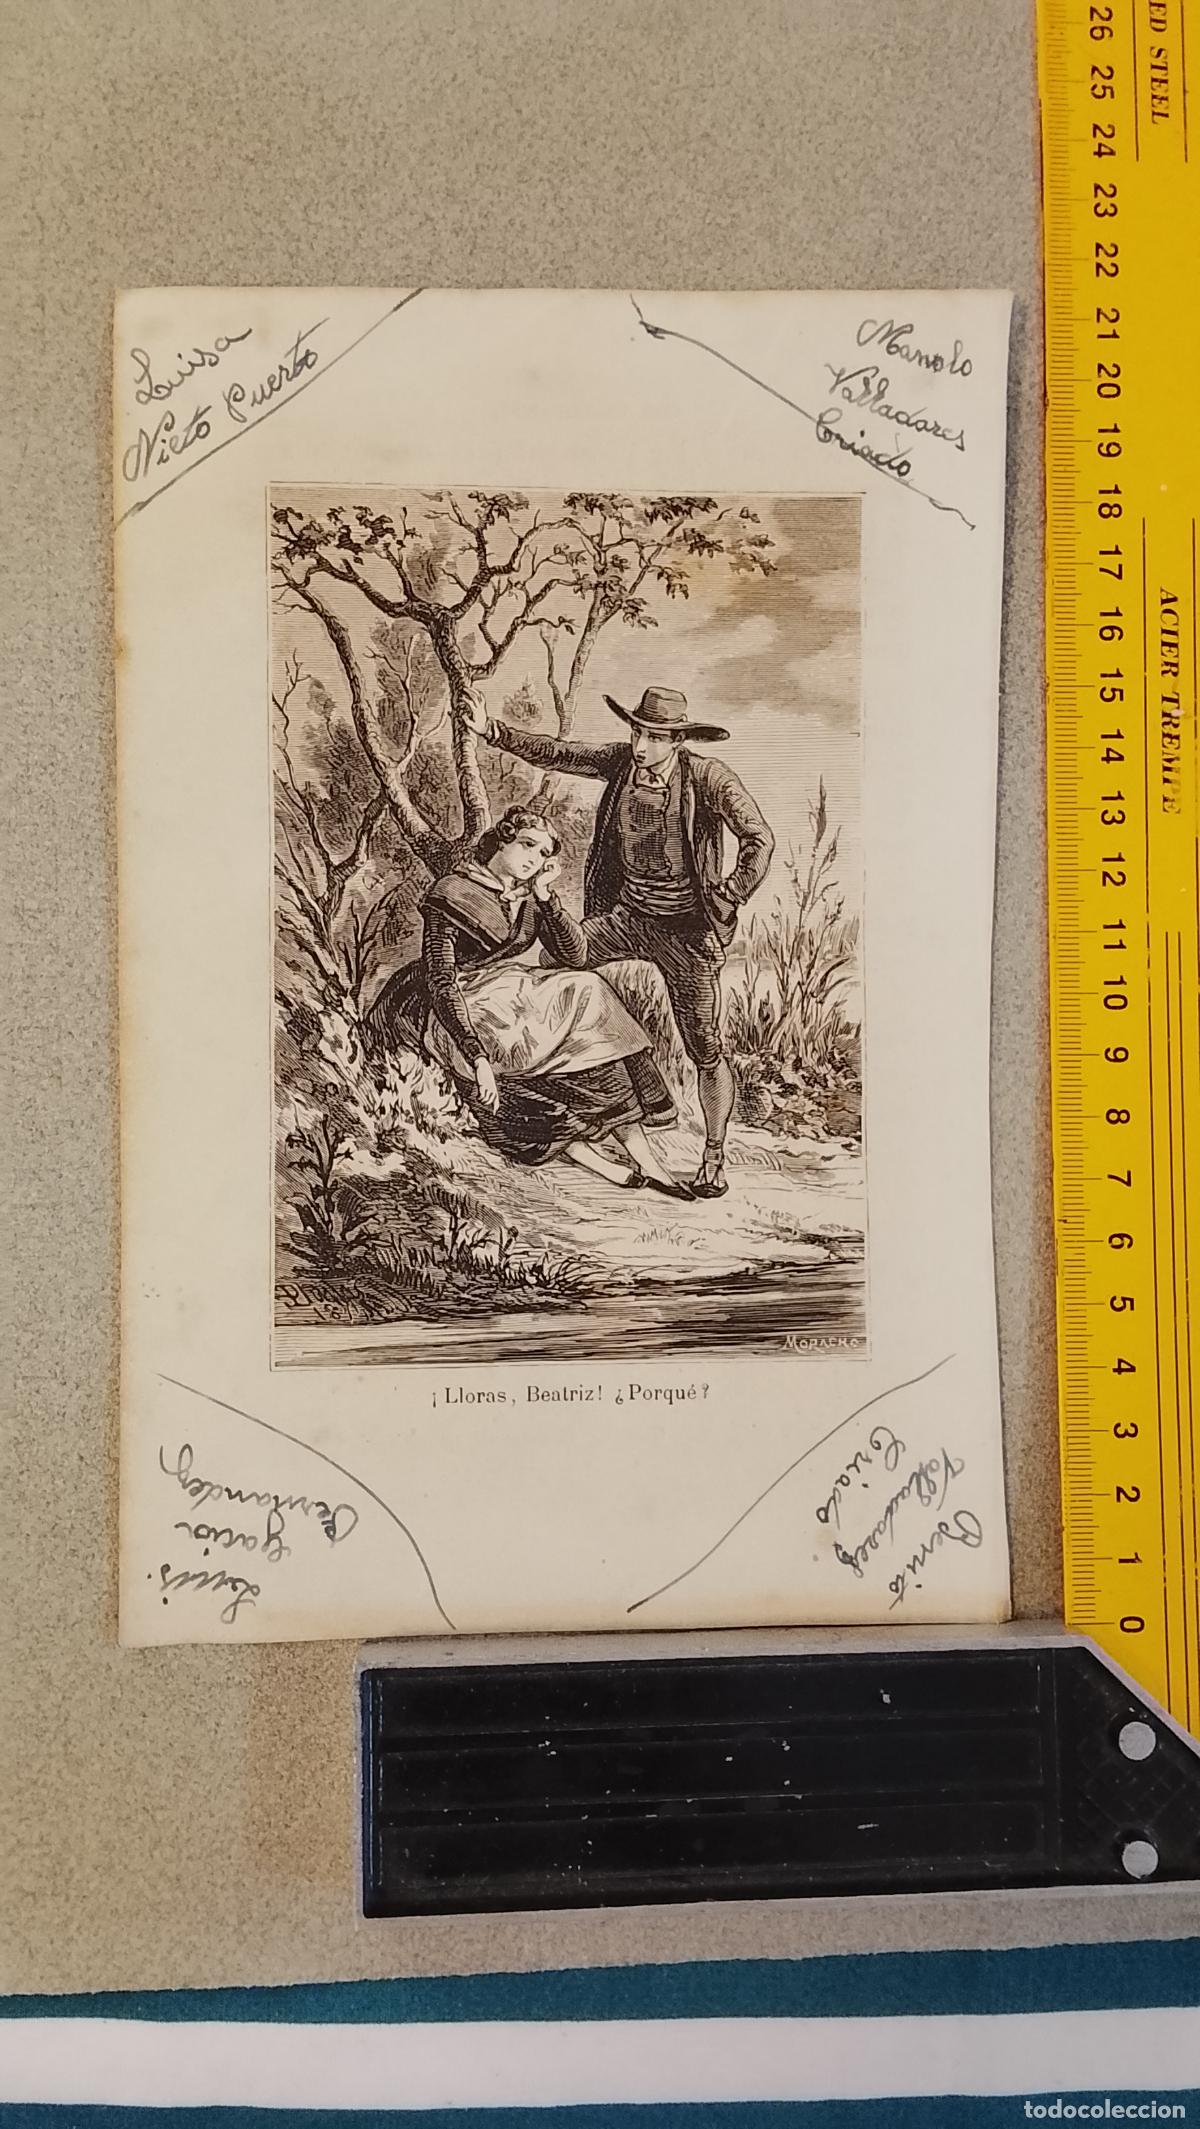 Luisa
Nieto Puerto
Manolo
Valladares
Criado
MORACHO
¡Lloras, Beatriz! ¿Porqué?
Luis.
Fernandez
Benito
Valladares
Criado
ED STEEL
ACIER TREMPE
26
25
24
23
22
21
20
19
18
17
16
15
14
13
12
11
10
9
8
7
6
5
4
3
2
1
0
todocoleccion